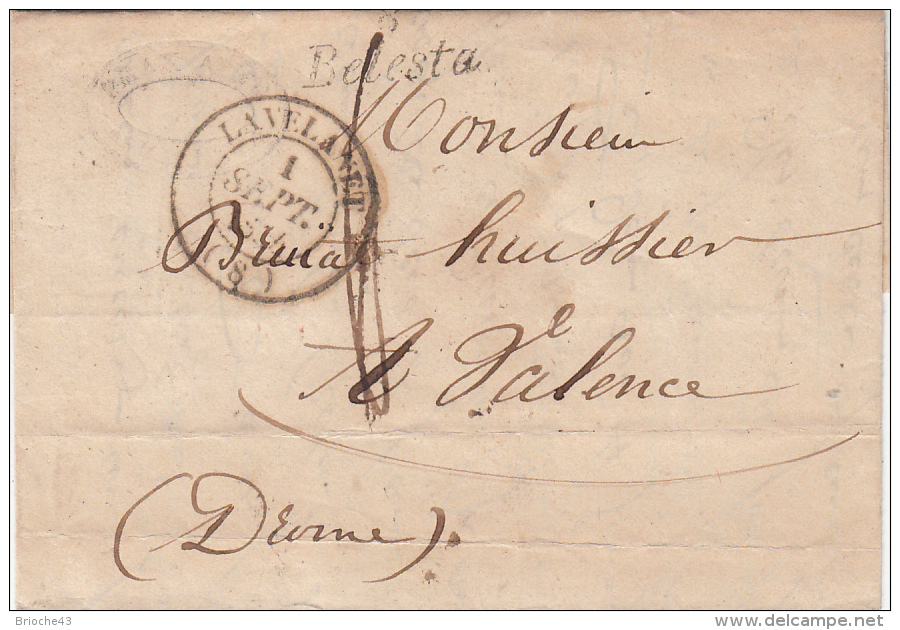 Belesta
LAVELANET
1
SEPT.
(8)
Monsieur
Brunat huissier
A Valence
(Drome).
Brioche43
delcampe.net